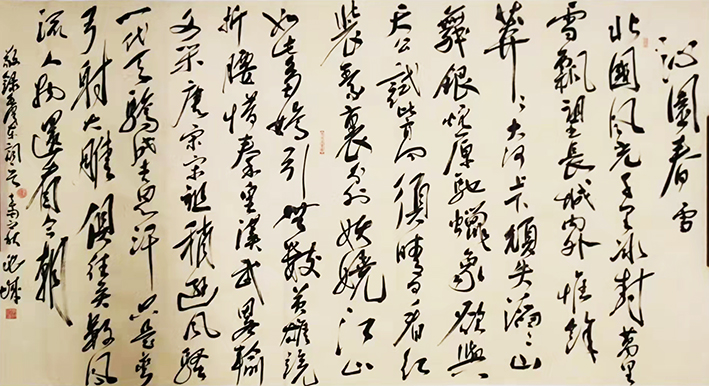 沁園春 雪
北國風光千里冰封萬里
雪飄望長城內外惟餘
莽々大河上下頓失滔々山
舞銀蛇原馳蠟象欲與
天公試比高須晴日看紅
裝素裹分外妖嬈江山
如此多嬌引無數英雄競
折腰惜秦皇漢武略輸
文采唐宗宋祖稍遜風騷
一代天驕成吉思汗只識彎
弓射大雕俱往矣數風
流人物還看今朝
敬錄毛澤東詞